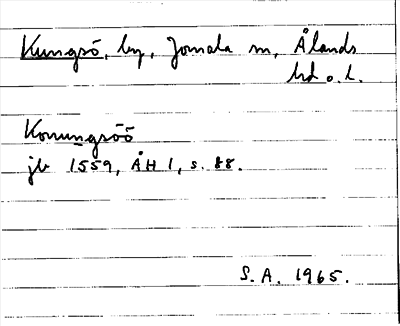 Kungsö, by, Jomala sn, Ålands
hd o. l.
Konungxöö
jb 1559, ÅH 1, s. 88.
S.A. 1965.